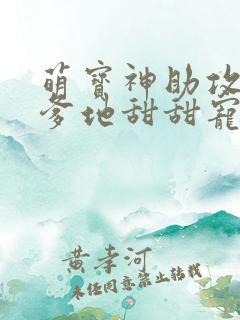 萌寶神助攻
爹地甜甜寵
黄孝河
未经同意禁止转载